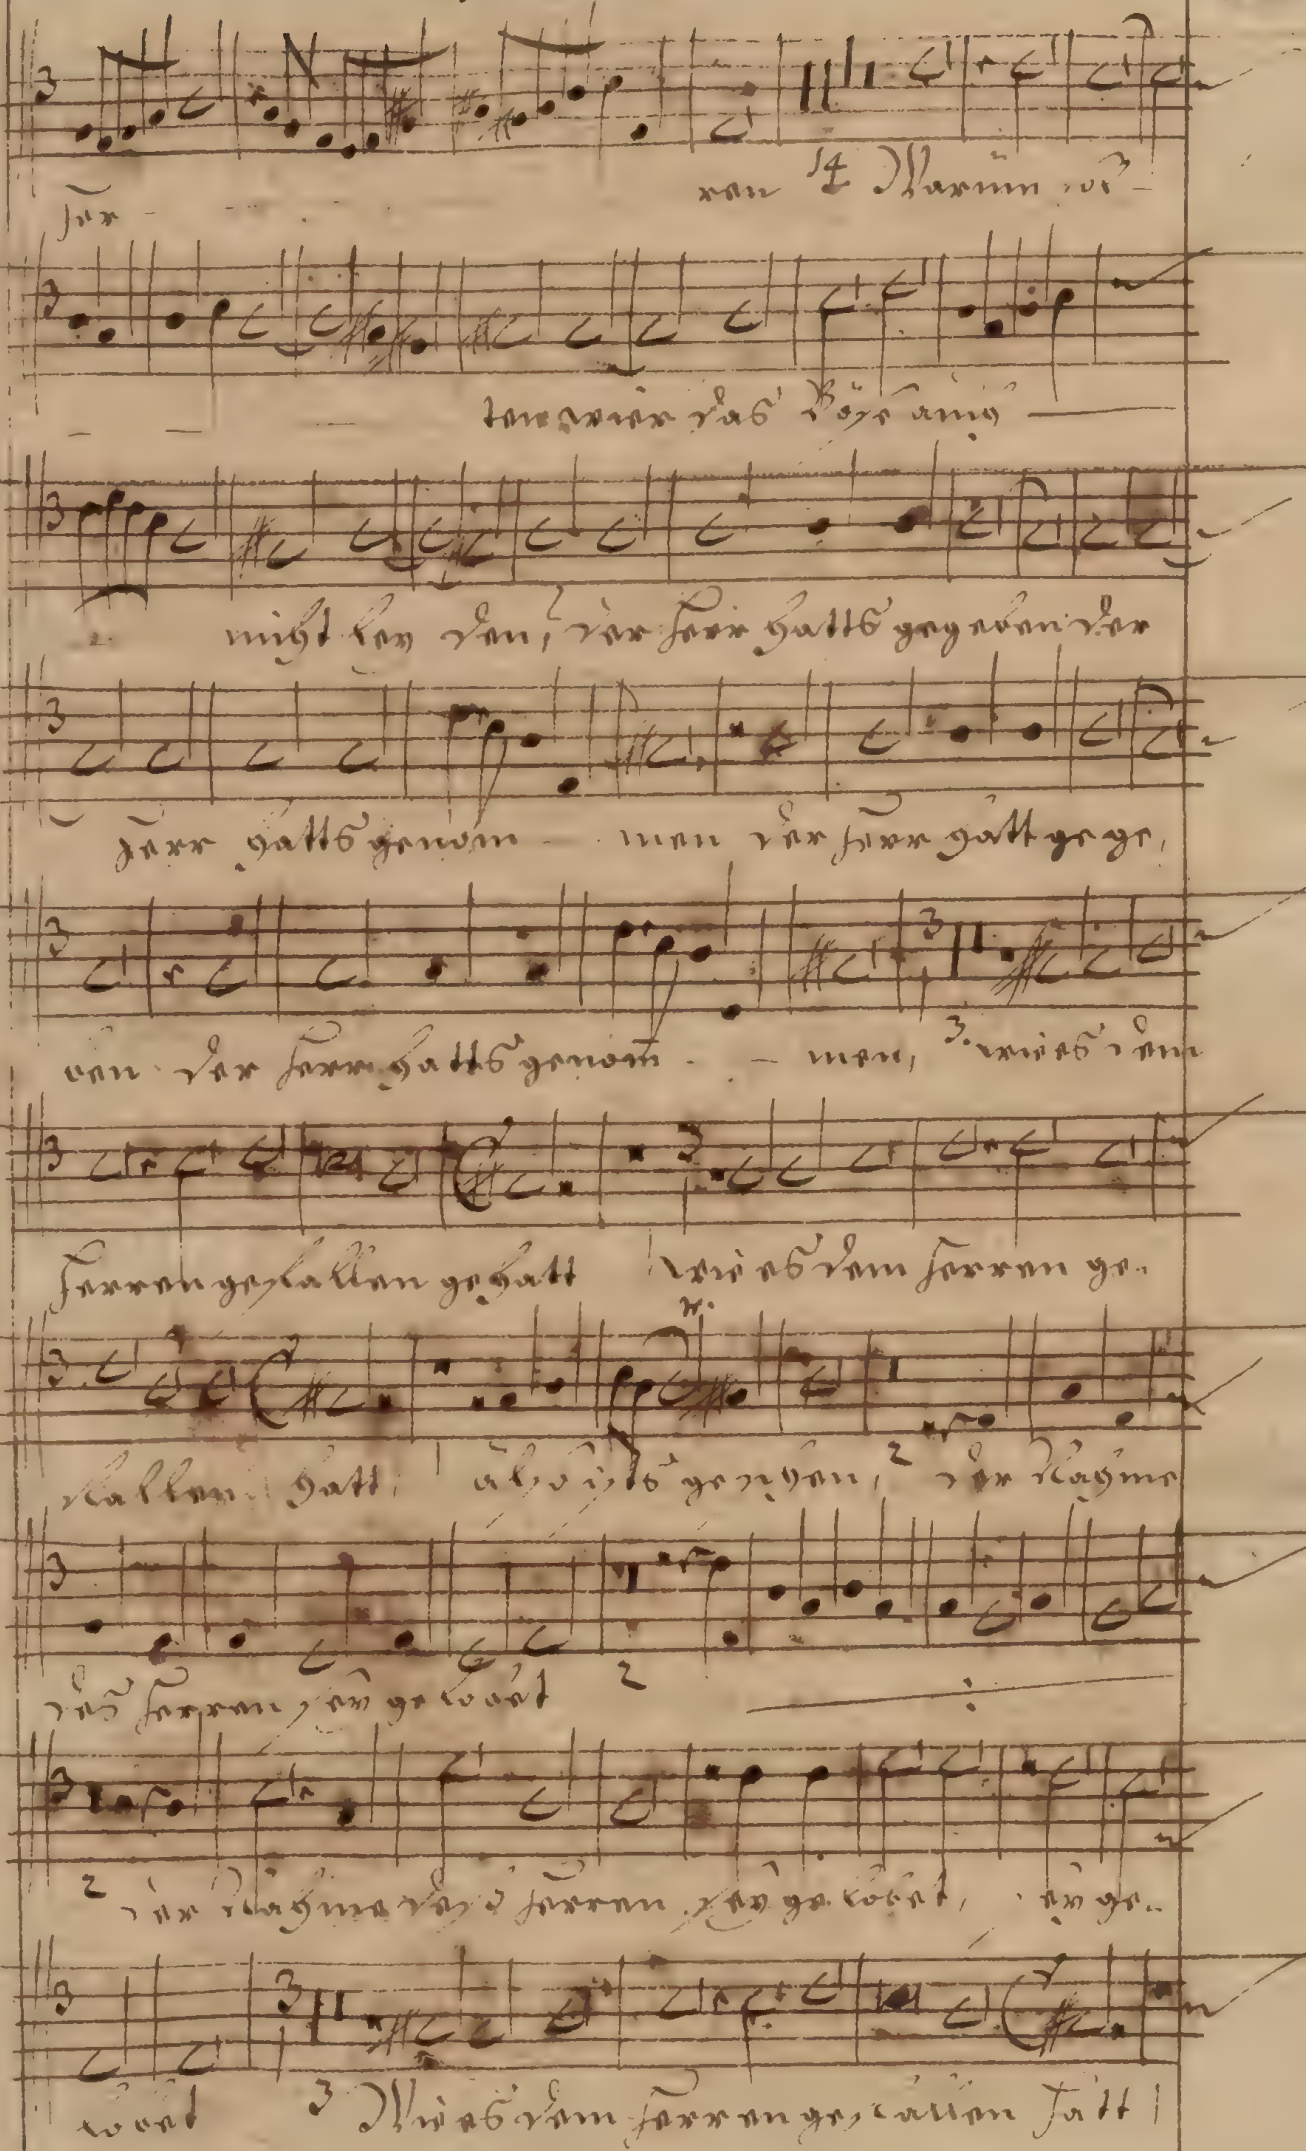 Her
ren 14 Warum wi
ten wier das Böse auch
nicht ley den, der Herr hatts gegeben der
Herr hatts genom men der Herr hatt gege,
ben der Herr hatts genom̄ men, 3. wie es dem
Herren gefallen gehatt wie es dem Herren ge.
fallen hatt, also ists geschen, 2 der Nahme
des Herren sey gelobet 2
2 der Nahme des Herren sey gelobet, sey ge..
lobet 3 Wie es dem Herren gefallen hatt